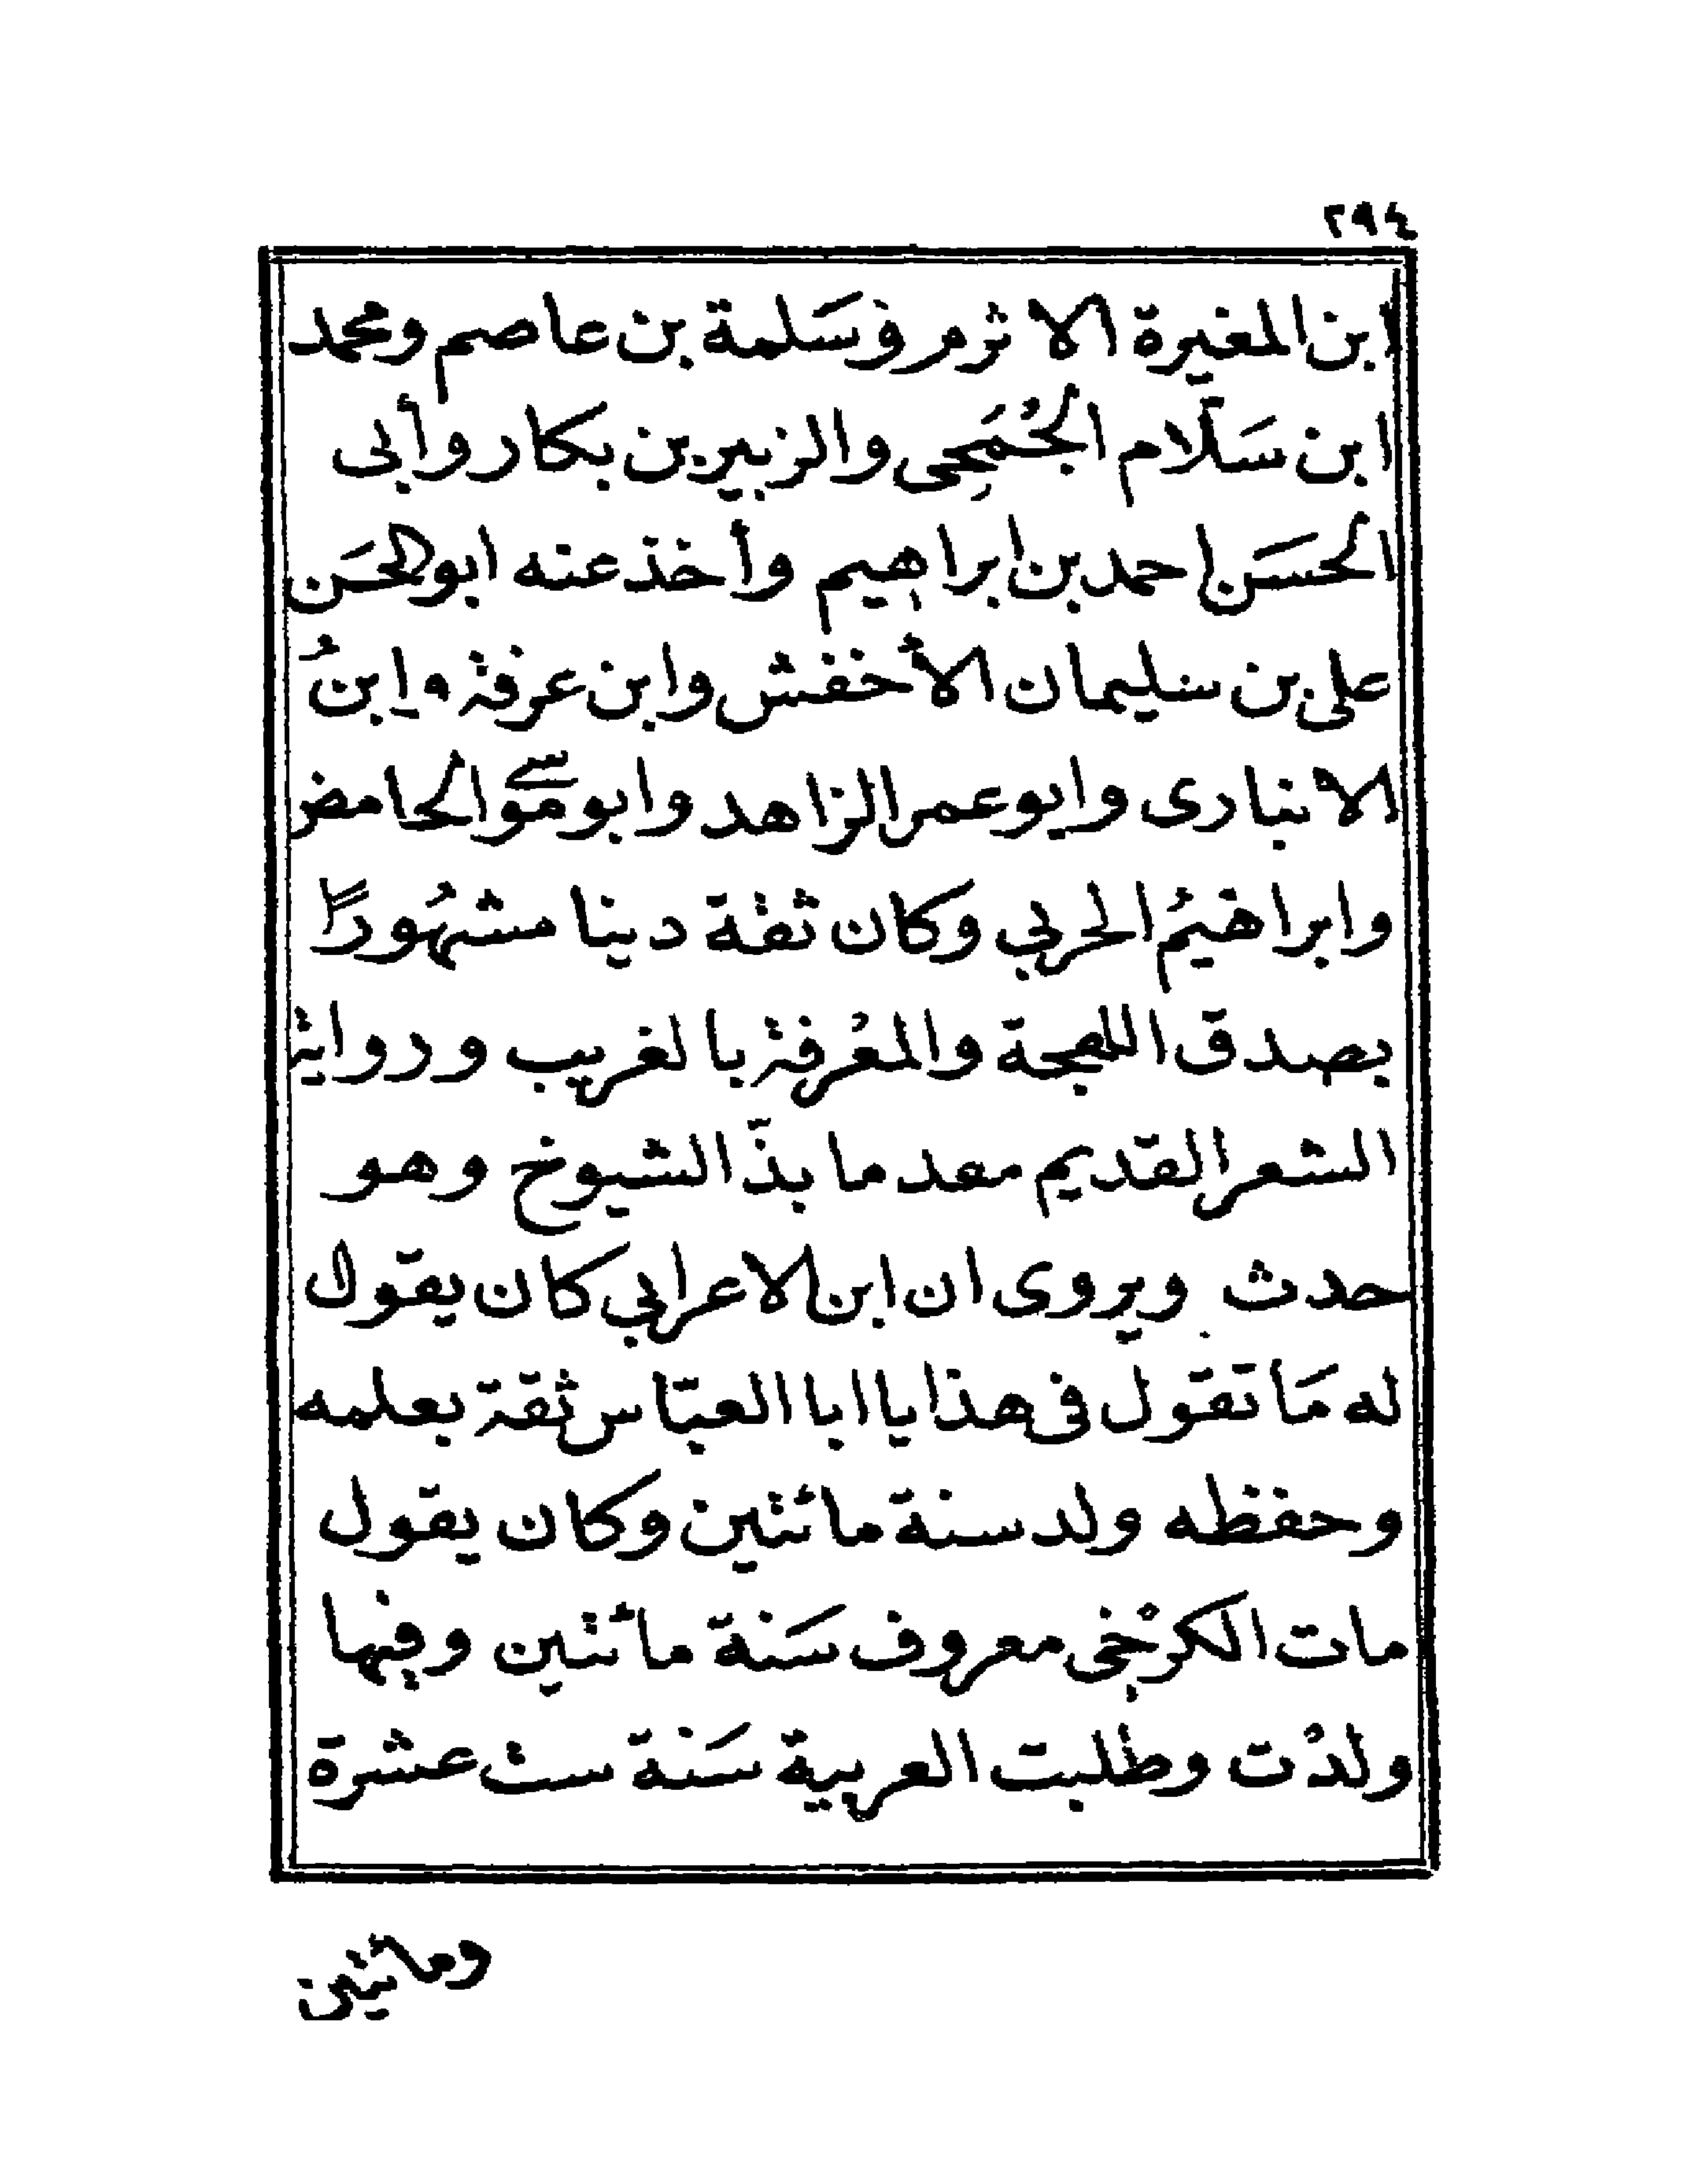 ٢٩٤
ابن المغيرة الاثرم وسَلمة بن عاصم ومحمد
ابن سَلّام الجُمَحِى والزبير بن بكار وأبى
الحسَن احمد بن ابراهيم وأخذ عنه ابو الحسَن
على بن سليمان الأخفش وابن عرفة وابنُ
الانبارى وابو عمر الزاهد وابو موسى الحامض
وابراهيمُ الحربي وكان ثقة دينا مشهُورًا
بصدق اللهجة والمعْرفة بالغريب ورواية
الشعر القديم مقدما بذّ الشيوخ وهو
حدث ويروى ان ابن الاعرابي كان يقول
له مَا تقول فى هذا يا ابا العبّاس ثقة بعلمه
وحفظه ولد سنة مائتين وكان يقول
مات الكرْخِى معروف سَنة مائتين وفيها
ولدْت وطلبت العربية سَنة ست عشرة
ومائتين